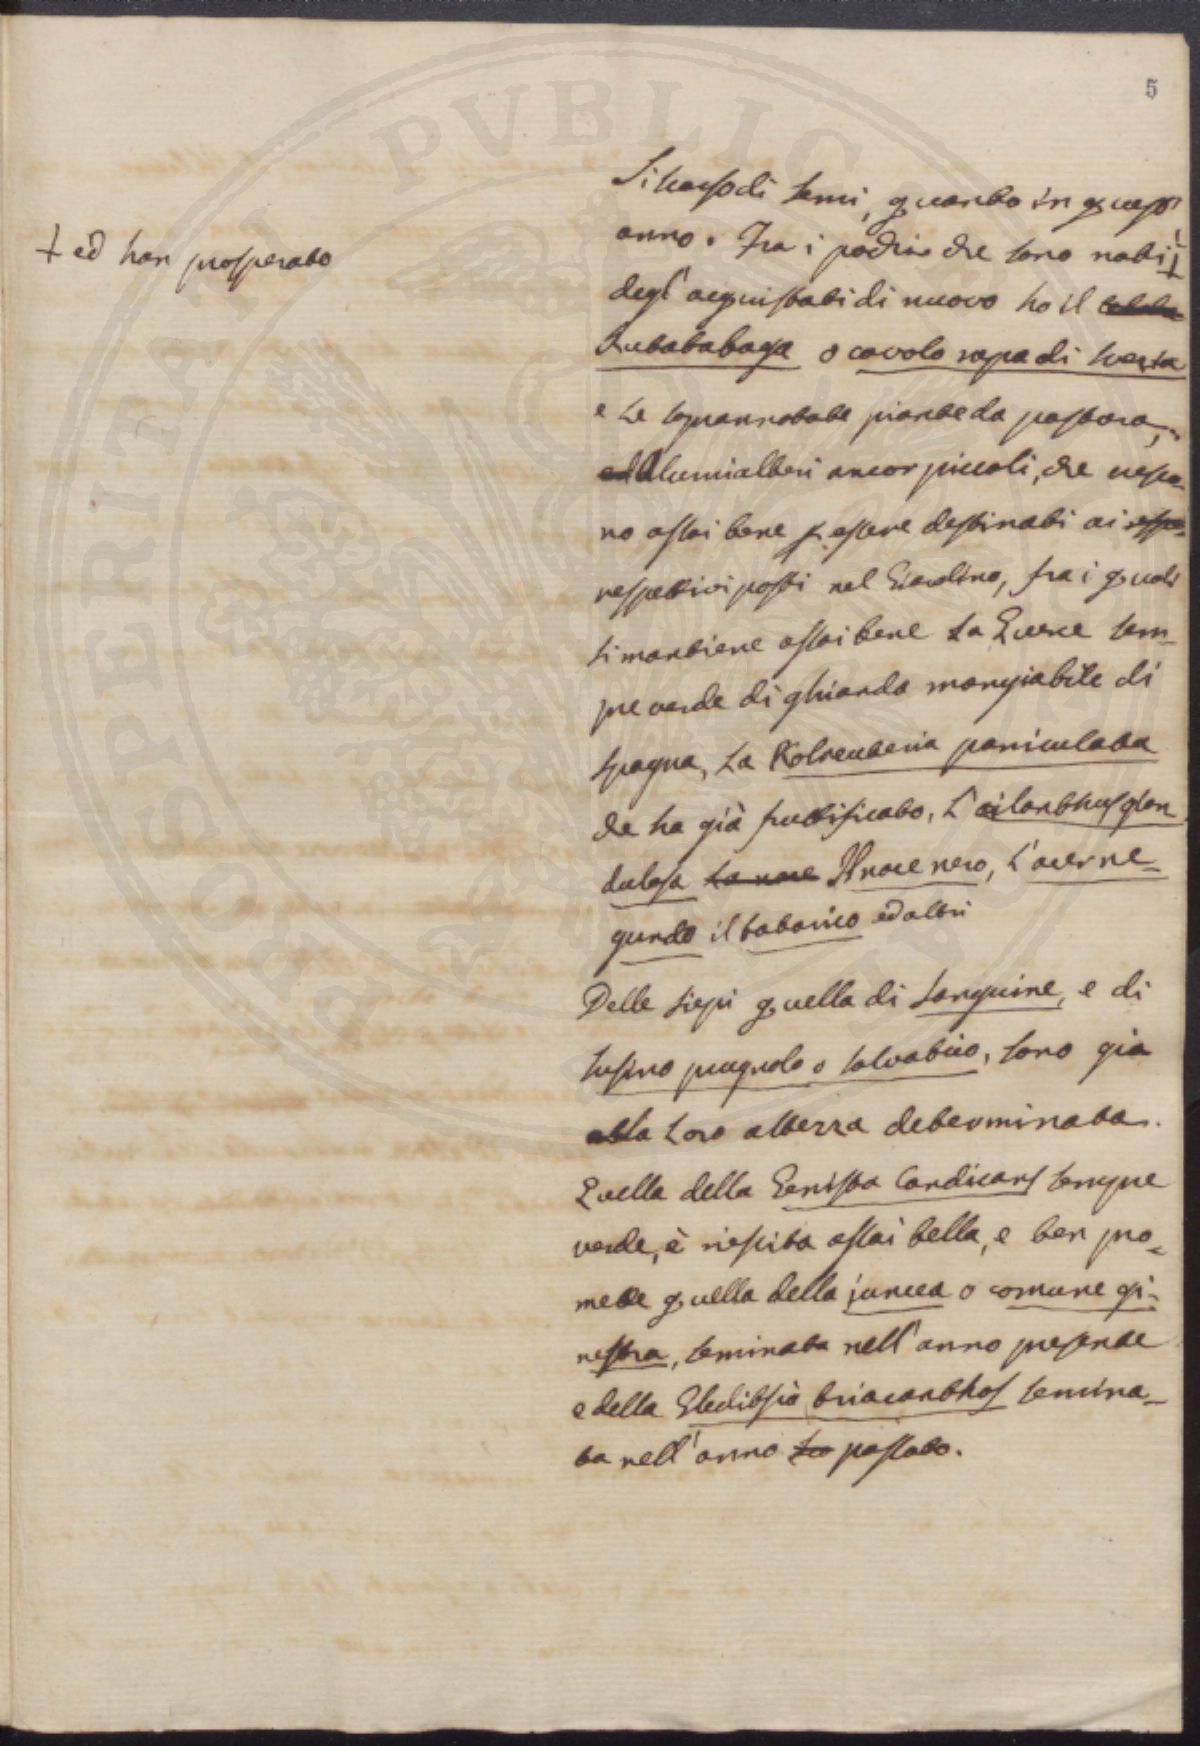 5
sì scarso di semi, quanto in quest'
anno. Fra i pochi che sono nati ┼
┼ ed han prosperato
degl'acquistati di nuovo ho il
Rutababaga o cavolo rapa di Svezia
e le soprannotate piante da pastura,
Alcuni alberi ancor piccoli, che vesto-
no assai bene p. essere destinati ai
respettivi posti nel Giardino, fra i quali
si mantiene assai bene la Querce sem-
pre verde di ghianda mangiabile di
Spagna, la Kolreuteria paniculata
che ha già fruttificato, l'ailanthus glan
dulosa la noce Il noce nero, l'acer ne-
gundo il tatarico ed altri
Delle siepi quella di sanguine, e di
susino prugnolo o salvatico, sono già
alla loro altezza determinata.
Quella della Genista Candicans sempre
verde, è riescita assai bella, e ben pro-
mette quella della juncea o comune gi-
nestra, seminata nell'anno presente
e della Gleditsia triacanthos semina-
ta nell'anno passato.